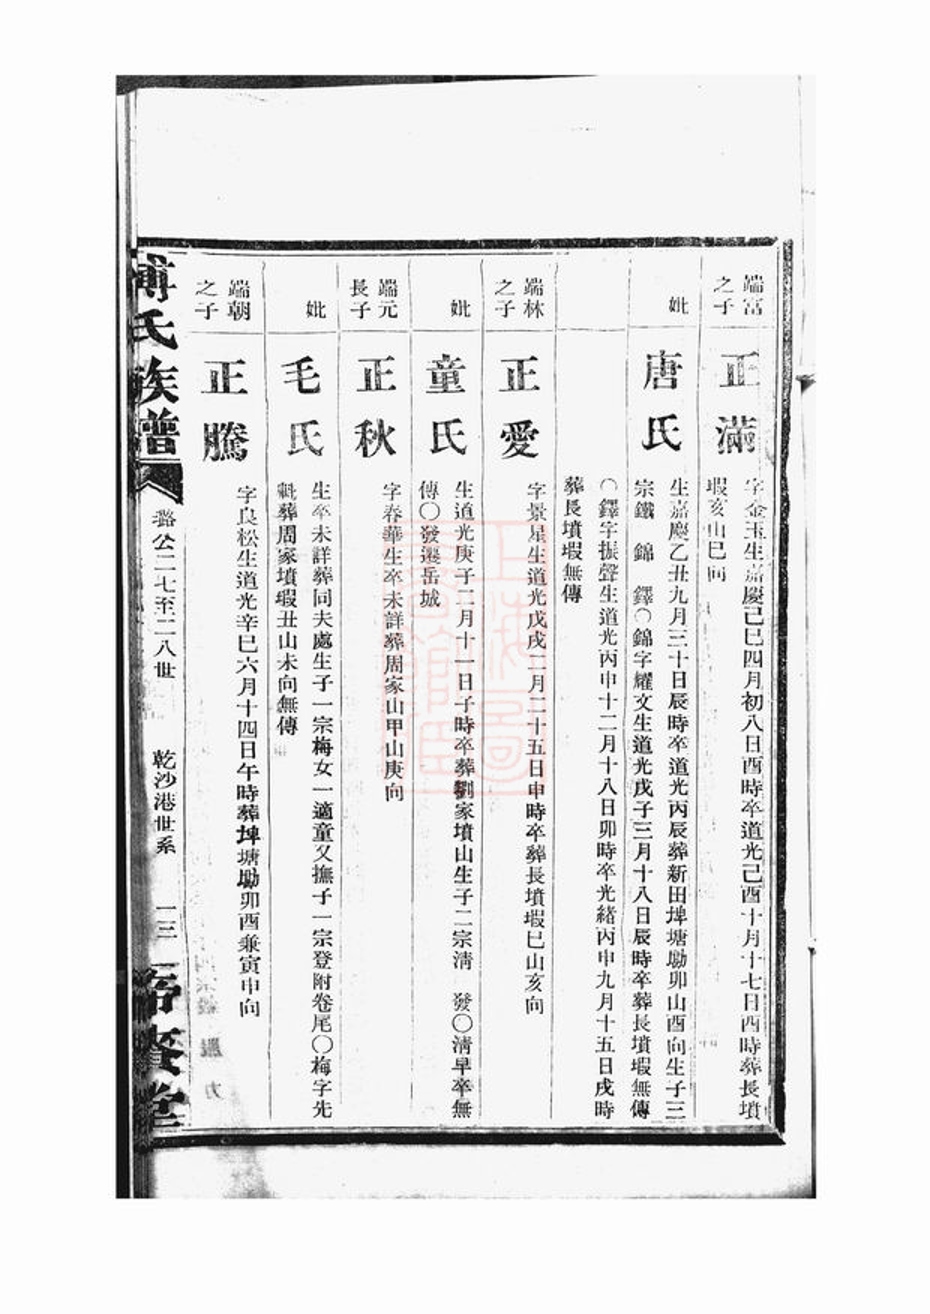 端富
之子
正滿
字金玉生嘉慶己巳四月初八日酉時卒道光己酉十月十七日酉時葬長墳
瑕亥山巳向
妣
唐氏
生嘉慶乙丑九月三十日辰時卒道光丙辰葬新田埤塘勘卯山酉向生子三
宗鐵 錦 鐸〇錦字耀文生道光戊子三月十八日辰時卒葬長墳瑕無傳
〇鐸字振聲生道光丙申十二月十八日卯時卒光緒丙申九月十五日戌時
葬長墳瑕無傳
端林
之子
正愛
字景星生道光戊戌二月二十五日申時卒葬長墳瑕巳山亥向
妣
童氏
生道光庚子二月十一日子時卒葬劉家墳山生子二宗淸 發〇淸早卒無
傳〇發遷岳城
端元
長子
正秋
字春華生卒未詳葬周家山甲山庚向
妣
毛氏
生卒未詳葬同夫處生子一宗梅女一適童又撫子一宗登附卷尾〇梅字先
葬周家墳瑕丑山未向無傳
端朝
之子
正騰
字良松生道光辛巳六月十四日午時葬埤塘勘卯酉兼寅申向
傅氏族譜
璐公二七至二八世
乾沙港世系
一三
堂